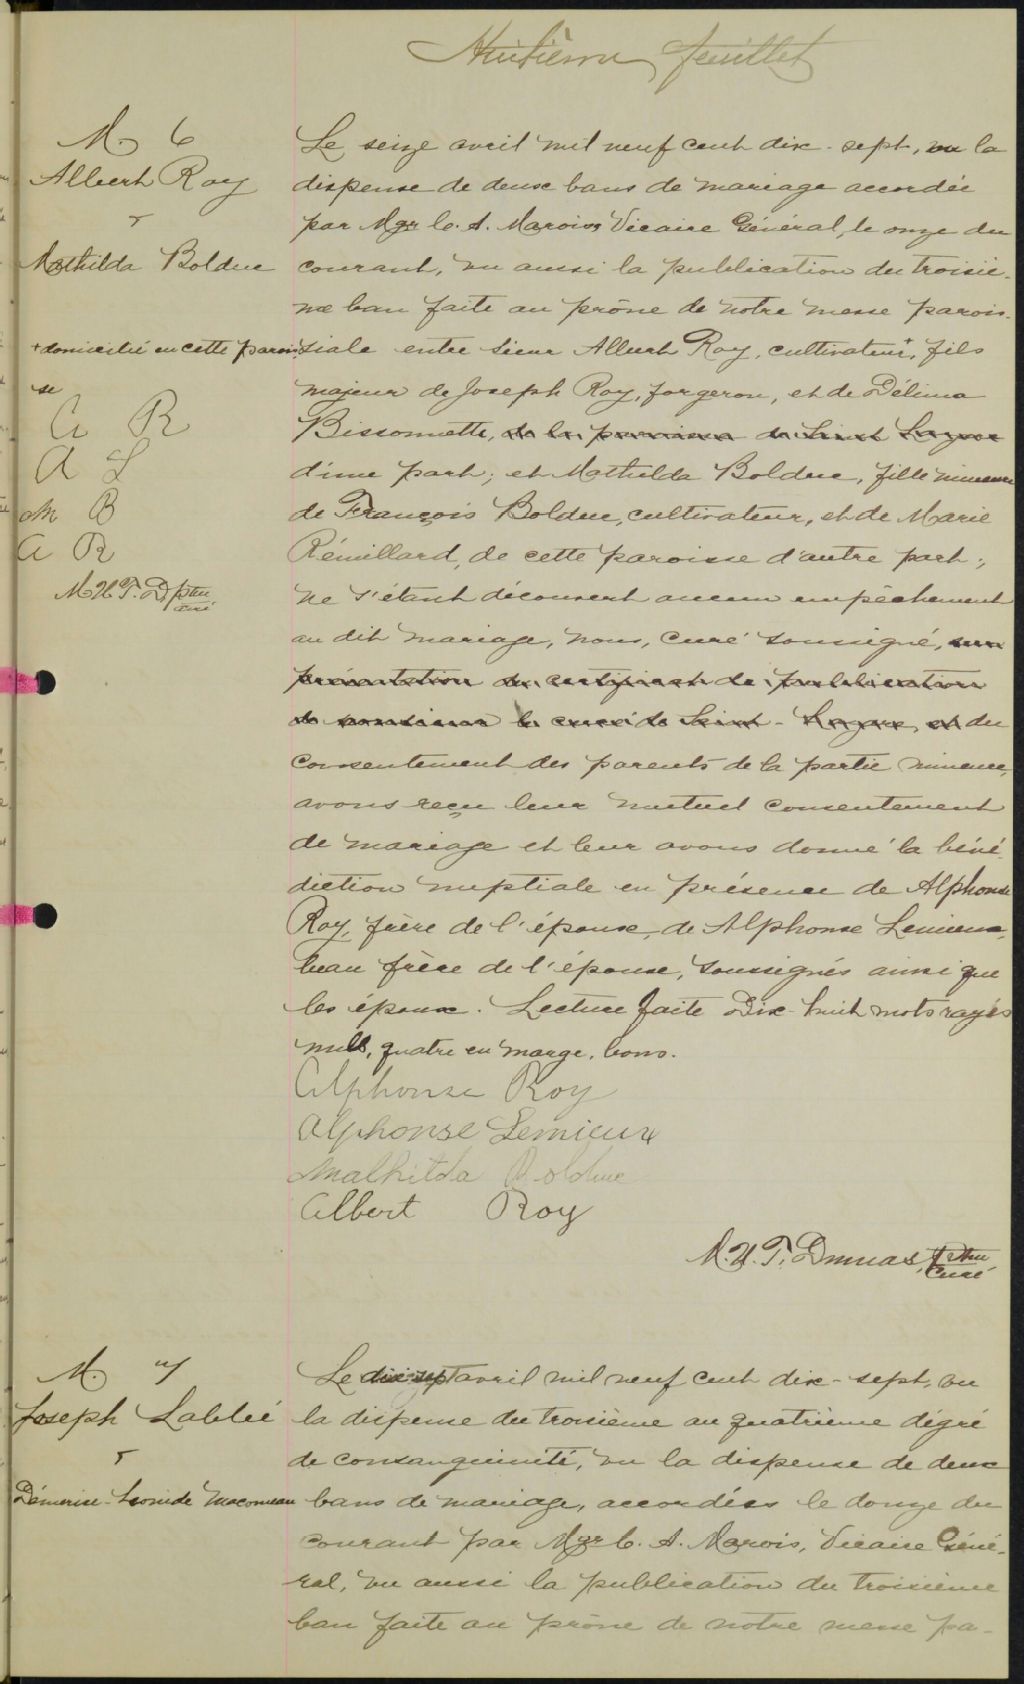 Huitième feuillet
M. 6
Albert Roy
&
Mathilda Bolduc
+ domicilié en cette parois
se
A R
A L
M B
A R
M. U. T. D. ptre
curé
Le seize avril mil neuf cent dix-sept, vu la
dispense de deux bans de mariage accordée
par Mgr C. A. Marois, Vicaire Général, le onze du
courant, vu aussi la publication du troisiè-
me ban faite au prône de notre messe parois-
siale entre sieur Albert Roy, cultivateur +, fils
majeur de Joseph Roy, forgeron, et de Délima
Bissonnette, de la paroisse de Saint Lazare
d'une part; et Mathilda Bolduc, fille mineure
de François Bolduc, cultivateur, et de Marie
Rémillard, de cette paroisse d'autre part;
ne s'étant découvert aucun empêchement
au dit mariage, nous, curé soussigné, sur
présentation du certificat de publication
de monsieur le curé de Saint-Lazare, et du
consentement des parents de la partie mineure,
avons reçu leur mutuel consentement
de mariage et leur avons donné la béné-
diction nuptiale en présence de Alphonse
Roy, frère de l'époux, de Alphonse Lemieux,
beau frère de l'épouse, soussignés ainsi que
les époux. Lecture faite Dix-huit mots rayés
nuls, quatre en marge, bons.
Alphonse Roy
Alphonse Lemieux
Mathilda Bolduc
Albert Roy
M. U. T. Dumas, Ptre
Curé
M. 7
Joseph Labbé
&
Démerise-Léonide Macomeau
Le dix-sept avril mil neuf cent dix-sept, vu
la dispense du troisième au quatrième dégré
de consanguinité, vu la dispense de deux
bans de mariage, accordées le douze du
courant par Mgr C. A. Marois, Vicaire Géné-
ral, vu aussi la publication du troisième
ban faite au prône de notre messe pa-